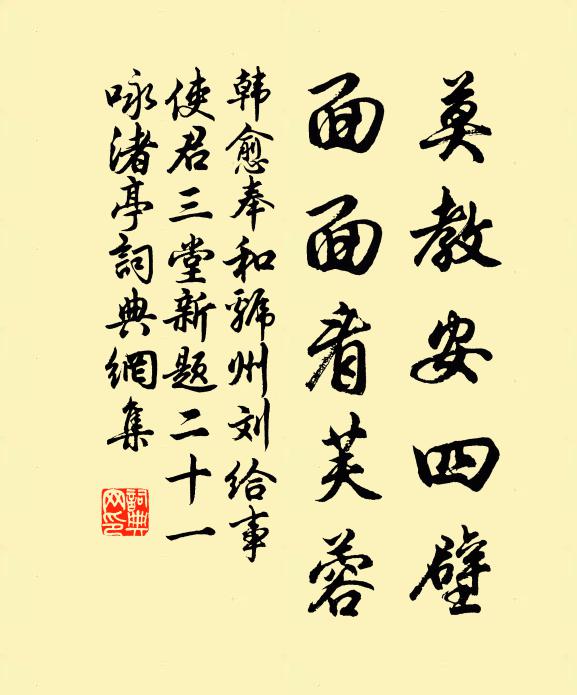 莫教安四壁
面面看芙蓉
韩愈奉和虢州刘给事
使君三堂新题二十一
咏渚亭詞典網集
詞典网印